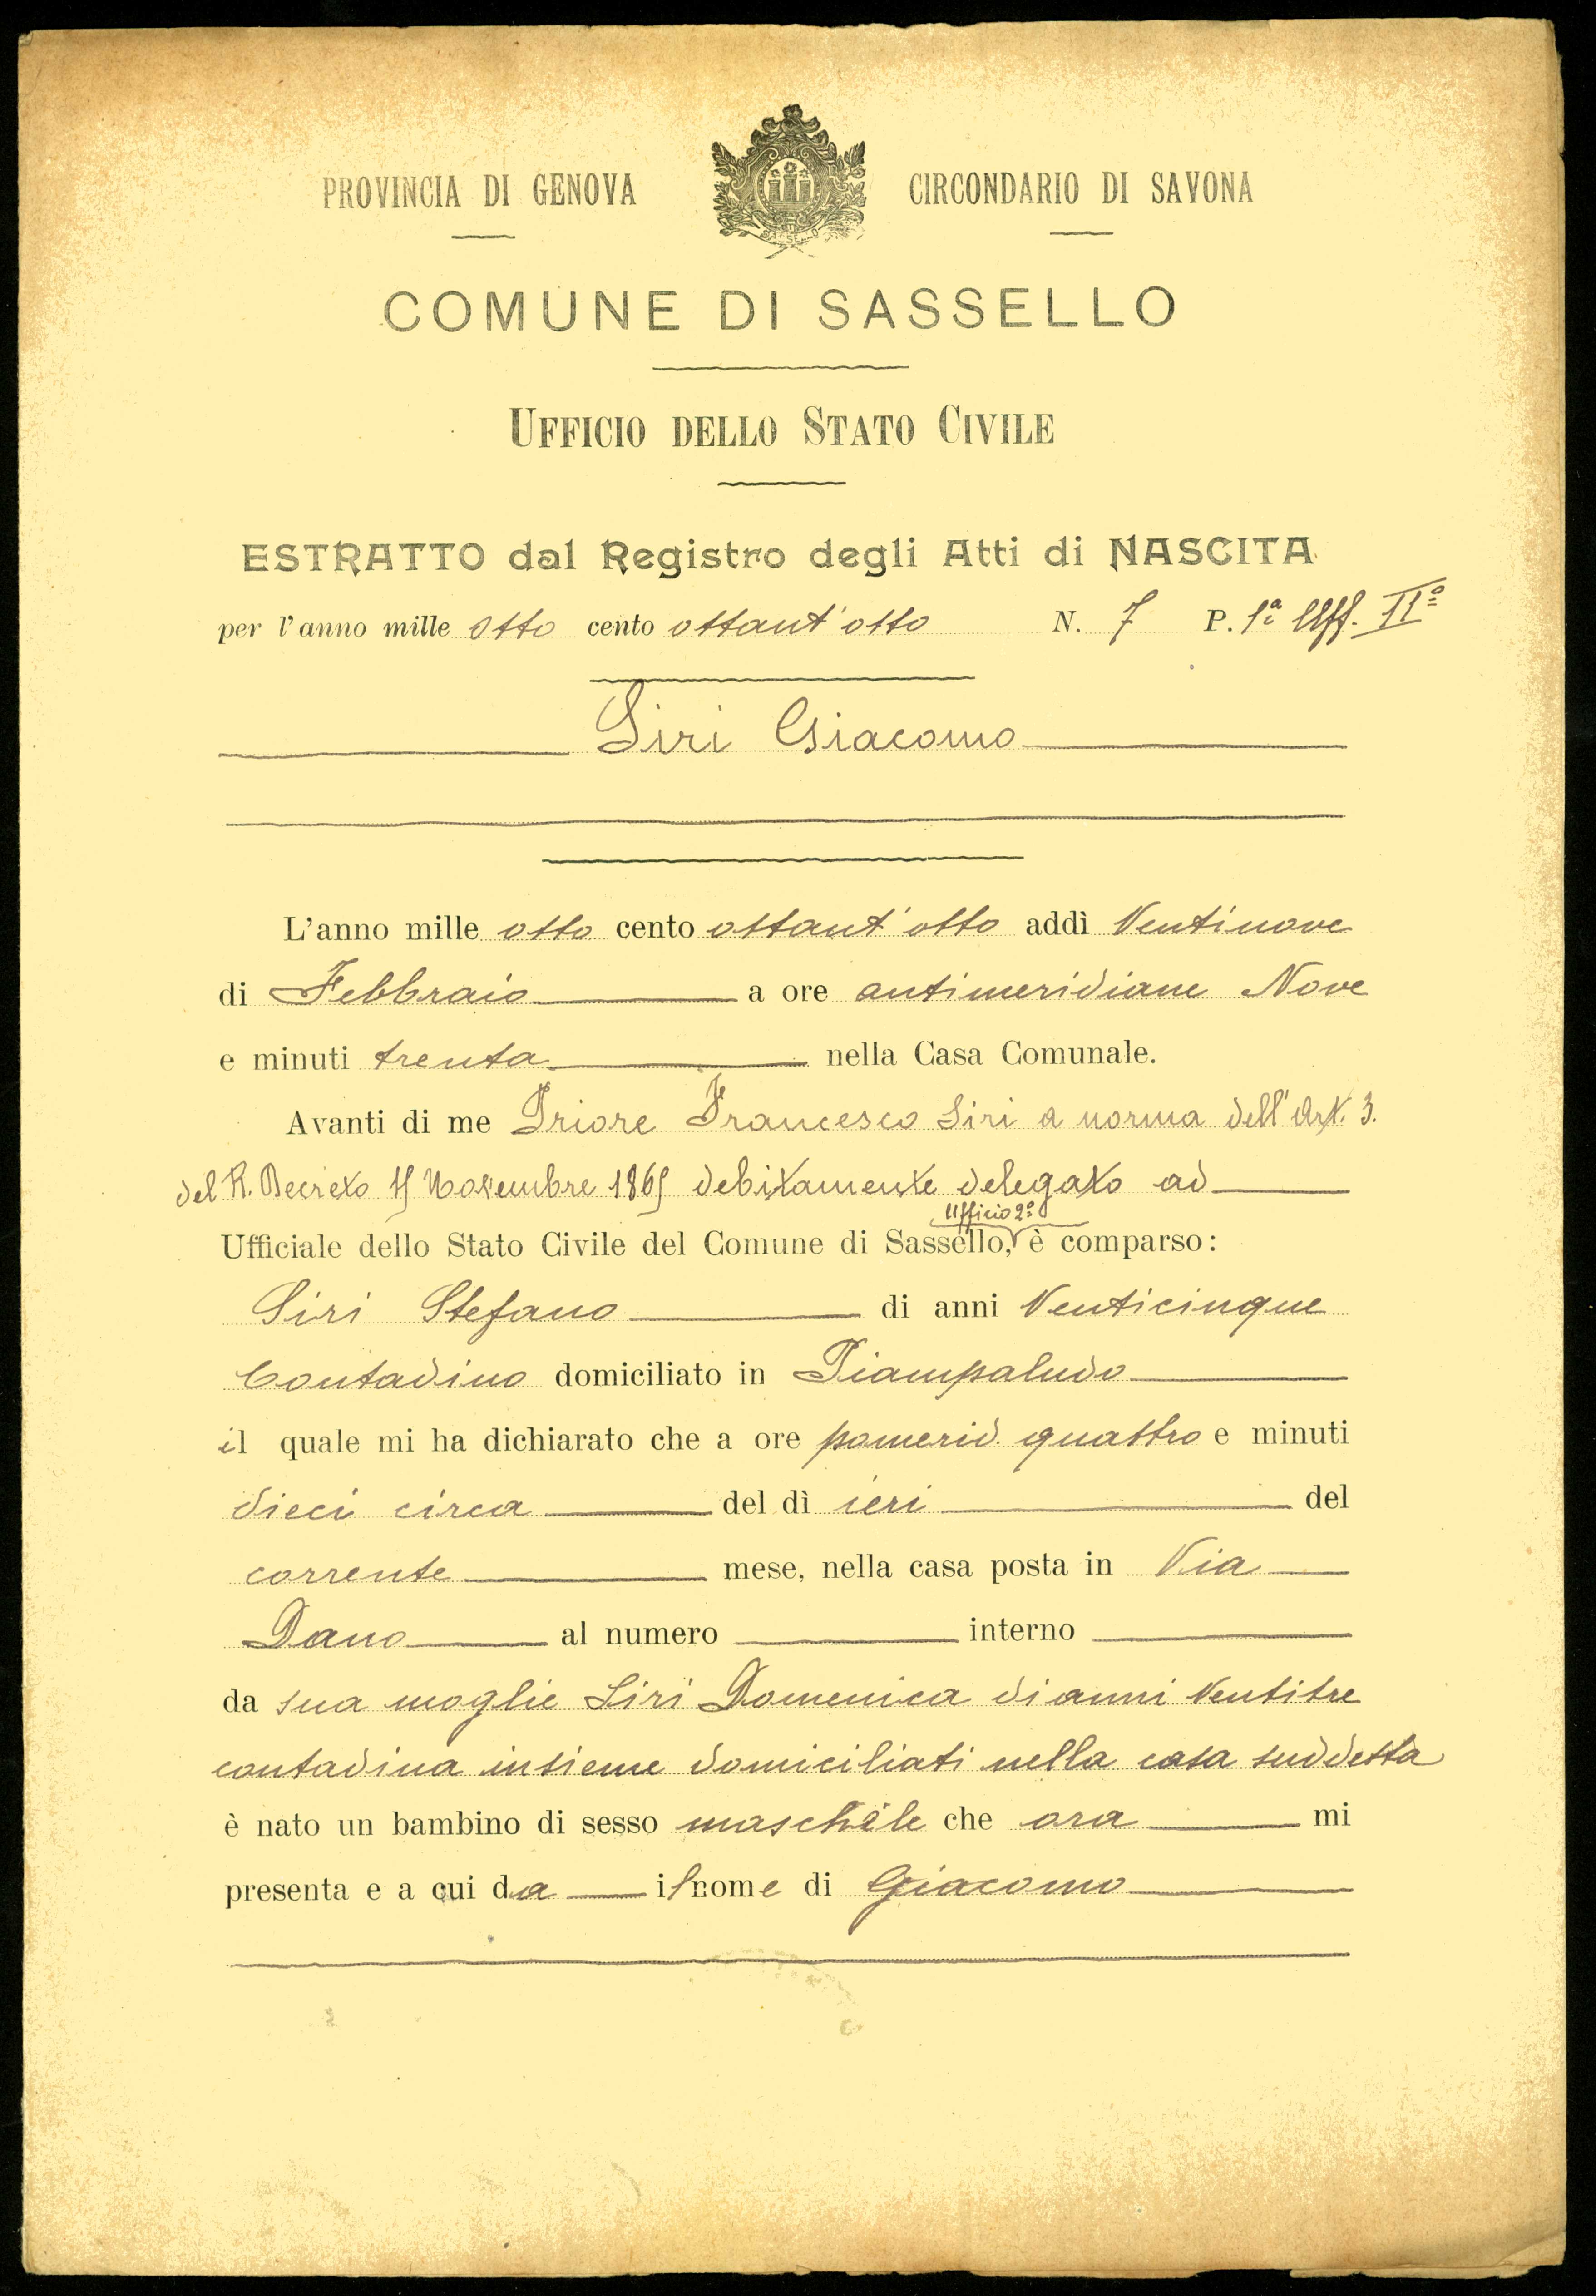 PROVINCIA DI GENOVA
CIRCONDARIO DI SAVONA
COMUNE DI SASSELLO
UFFICIO DELLO STATO CIVILE
ESTRATTO dal Registro degli Atti di NASCITA
per l'anno mille otto cento ottant'otto N. 7 P. 1ª Uff. IIº
Siri Giacomo
L'anno mille otto cento ottant'otto addì Ventinove
di Febbraio a ore antimeridiane Nove
e minuti trenta nella Casa Comunale.
Avanti di me Priore Francesco Siri a norma dell'Art. 3.
del R. Decreto 15 Novembre 1865 debitamente delegato ad
Ufficio 2º
Ufficiale dello Stato Civile del Comune di Sassello, è comparso:
Siri Stefano di anni Venticinque
Contadino domiciliato in Piampaludo
il quale mi ha dichiarato che a ore pomerid. quattro e minuti
dieci circa del dì ieri del
corrente mese, nella casa posta in Via
Dano al numero interno
da sua moglie Siri Domenica di anni Ventitre
contadina insieme domiciliati nella casa suddetta
è nato un bambino di sesso maschile che ora mi
presenta e a cui da il nome di Giacomo